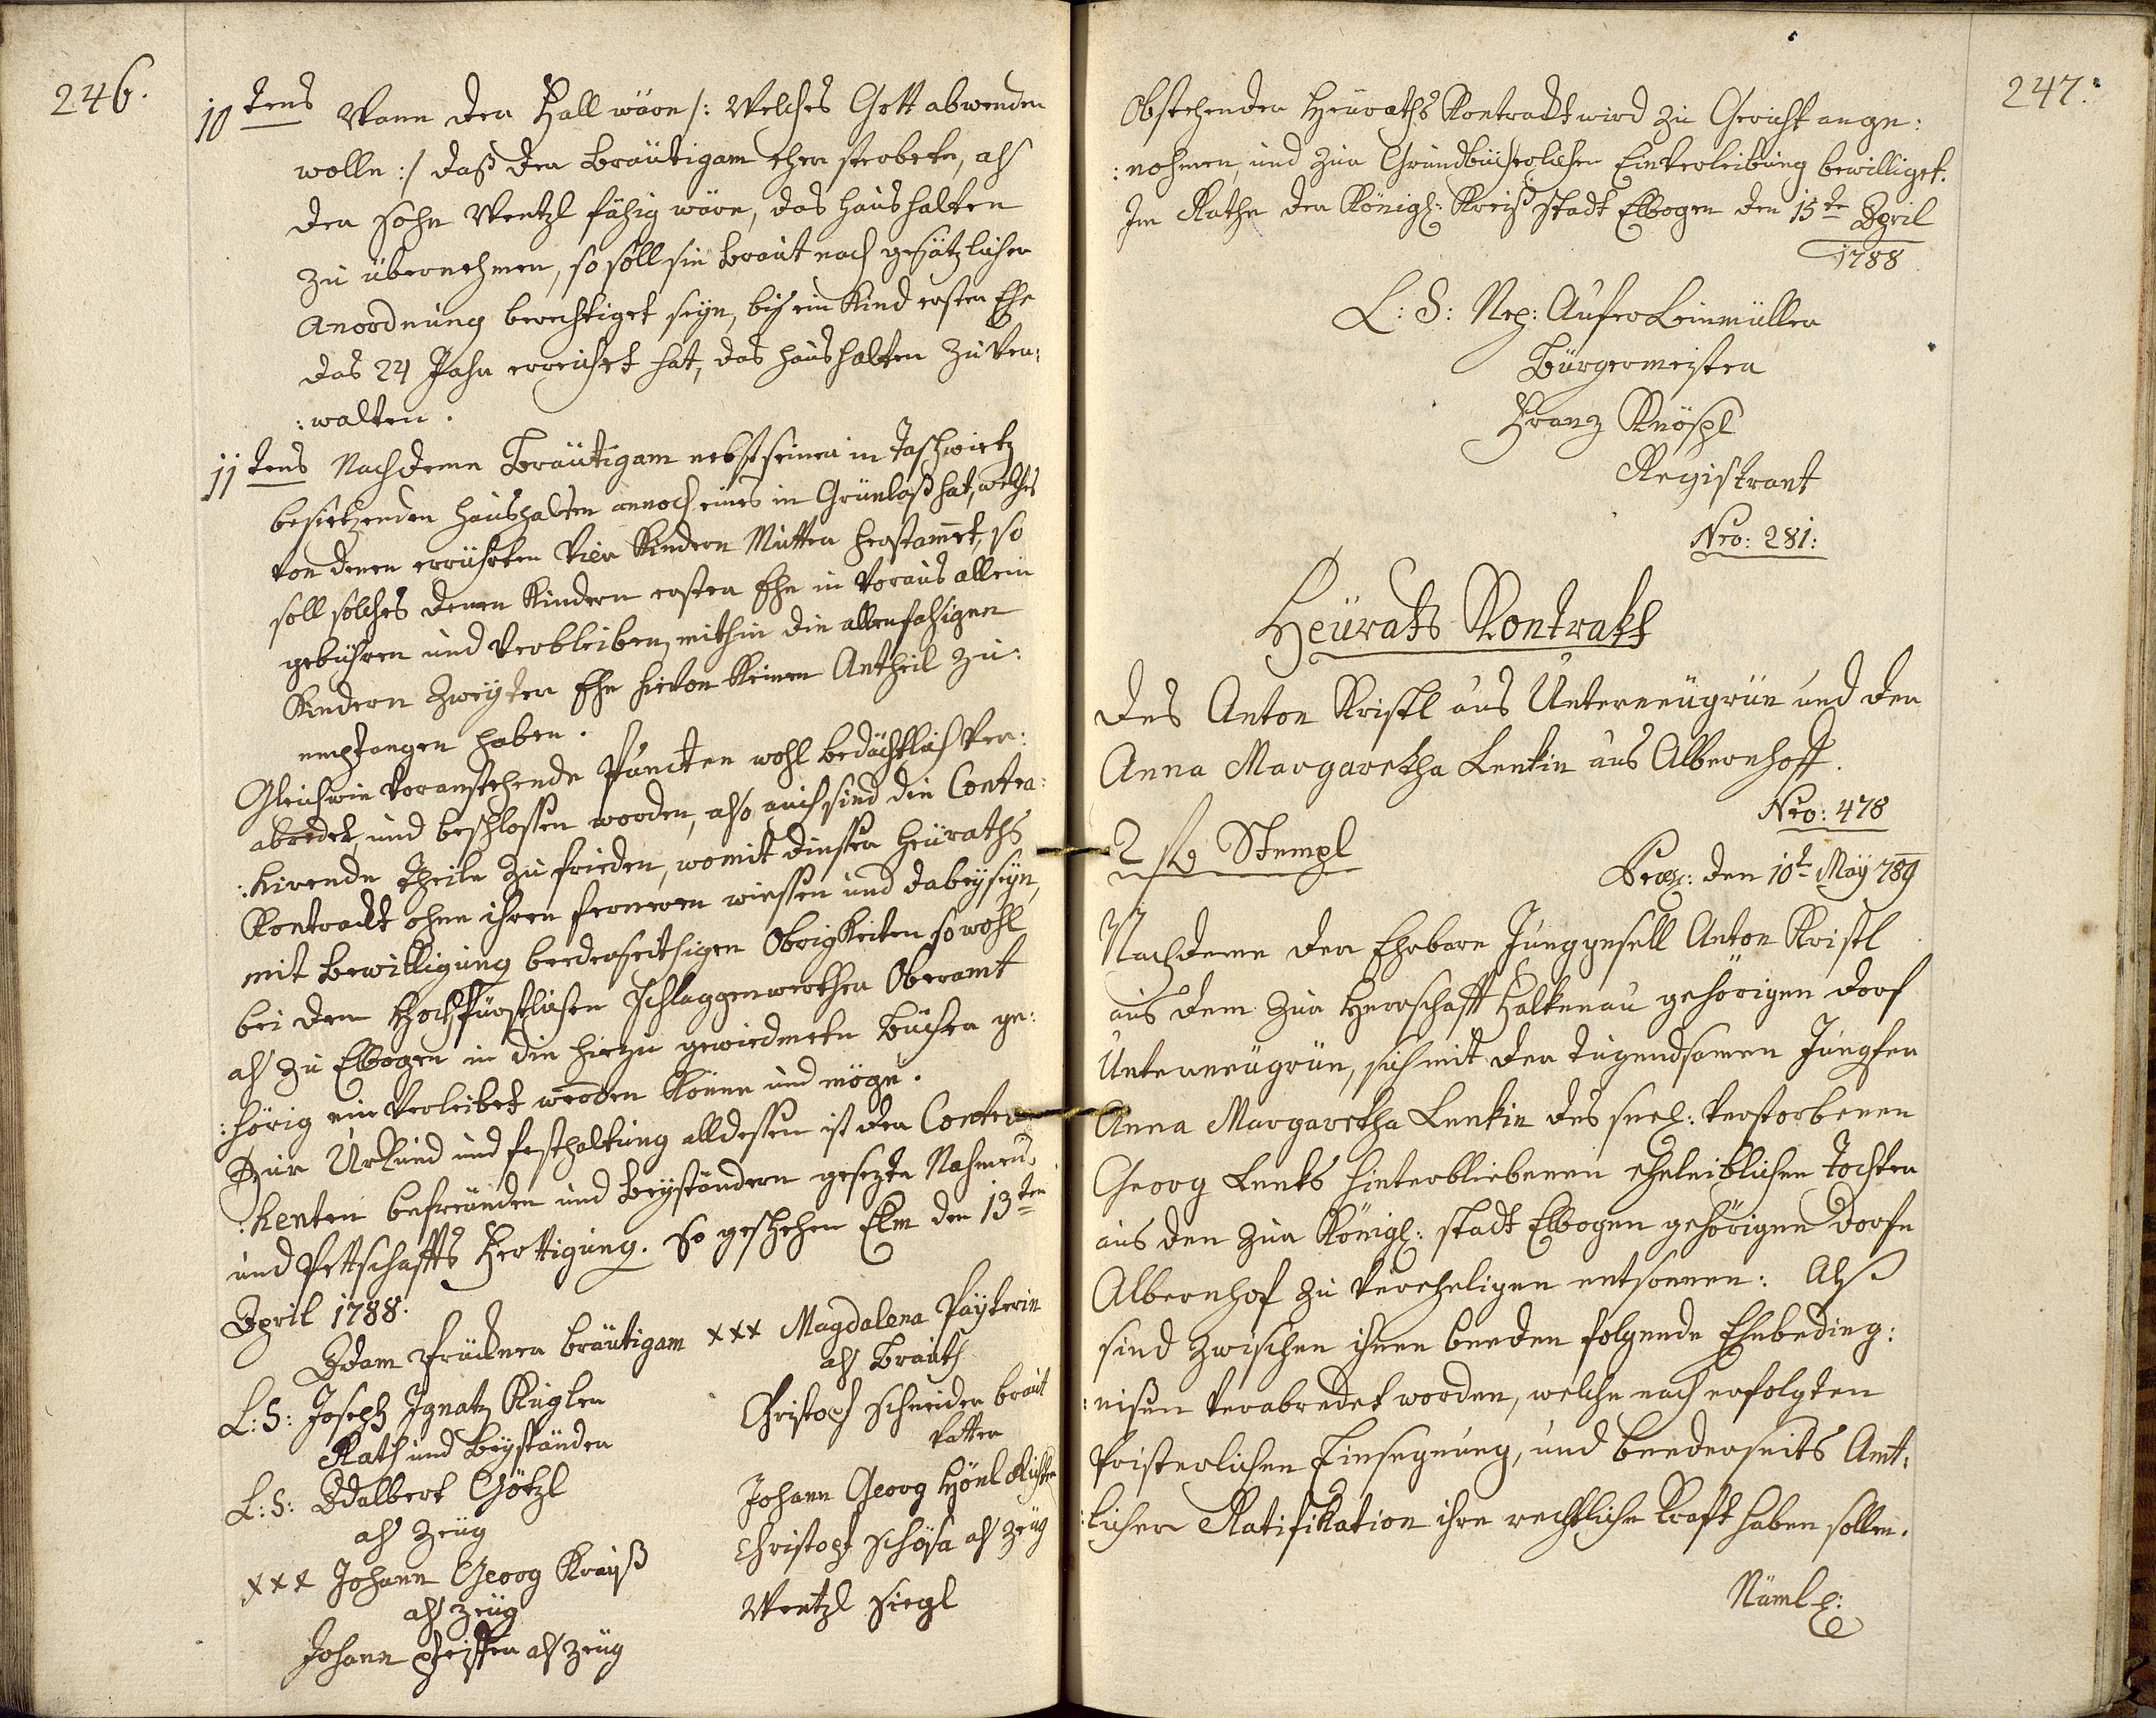 246.
10tens Wann der Fall wäre /: Welches Gott abwenden
wolle :/ daß der Bräutigam eher sterbete, als
der Sohn Wentzl fähig wäre, das Haushalten
zu übernehmen, so soll sie Braut nach gesätzlicher
Anordnung berechtiget seyn, bis ein Kind erster Ehe
das 24 Jahr erreichet hat, das Haushalten zu Ver:
:walten.
11tens Nachdeme Bräutigam nebst seinen in Taschwietz
besietzenden Haushalten annoch eines in Grünlaß hat, welches
von denen errührten Vier Kindern Mutter herstam̄et, so
soll solches denen Kindern erster Ehe in Voraus allein
gebühren und Verbleiben, mithin die allenfahsigen
Kindern Zweyter Ehe hievon Keinen Antheil zu:
empfangen haben.
Gleichwie Voranstehende Puncten wohl bedächtlich Ver:
abredet, und beschlossen worden, also auch sind die Contra:
:hirende Theile zu frieden, womit diesser Heuraths
Kontrackt ohne ihren ferneren wiessen und dabeyseyn,
mit Bewilligung beederseithigen Obrigkeiten so wohl
bei dem Hochfürstlichen Schlaggenwerther Oberamt
als zu Elbogen in die hiezu gewiedmete Bücher ge:
:hörig ein Verleibet werden könne und möge.
Zur Urkund und festhaltung alldessen ist der Contra
:henten befreunden und Beyständern gesezte Nahmens
und Pettschaffts Fertigung. So geschehen Elm den 13ten
April 1788.
Adam Prückner Bräutigam xxx Magdalena Payterin
als Brauth
L:S: Joseph Ignatz Kugler
Rath und Beyständer
Christoph Schneider braut
Vatter
L:S: Adalbert Götzl
als Zeüg
Johann Georg Hönl Richter
xxx Johann Georg Krauß
als zeüg
Christoph Schösa als Zeüg
Wentzl Siegl
Johann Pfeiffer als Zeüg
247.
Obstehender Heuraths Kontrackt wird zu Gericht ange:
:nohmen, und zur Grundbücherlichen Einverleibung bewilliget.
Im Rathe der Königl: Kreiß Stadt Elbogen den 15te April
1788
L: S: Nep: Aufer Leinmüller
Bürgermeister
Franz Knöspl
Registrant
Nro: 281:
Heurats Kontrakt
Des Anton Kristl aus Unterneugrün und der
Anna Margaretha Lenkin aus Albernhoff.
Nro: 478
2 fl Stempl
Præs: den 10t May 789
Nachdeme der Ehrbare Junggesell Anton Kristl
aus dem zur Herrschafft Falkenau gehörigen Dorf
Unterneugrün, sich mit der tugendsamen Jungfer
Anna Margaretha Lenkin des seel: verstorbenen
Georg Lenks hinterbliebenen eheleiblichen Tochter
aus den zur Königl: Stadt Elbogen gehörigen Dorfe
Albernhof zu Verehelichen entsonnen: Als
sind zwischen ihnen beeden folgende Ehebeding:
:nisen Verabredet worden, welche nach erfolgten
Pristerlichen Einsegnung, und beederseits Amt:
:licher Ratifikation ihre rechtliche Kraft haben sollen.
Näml: